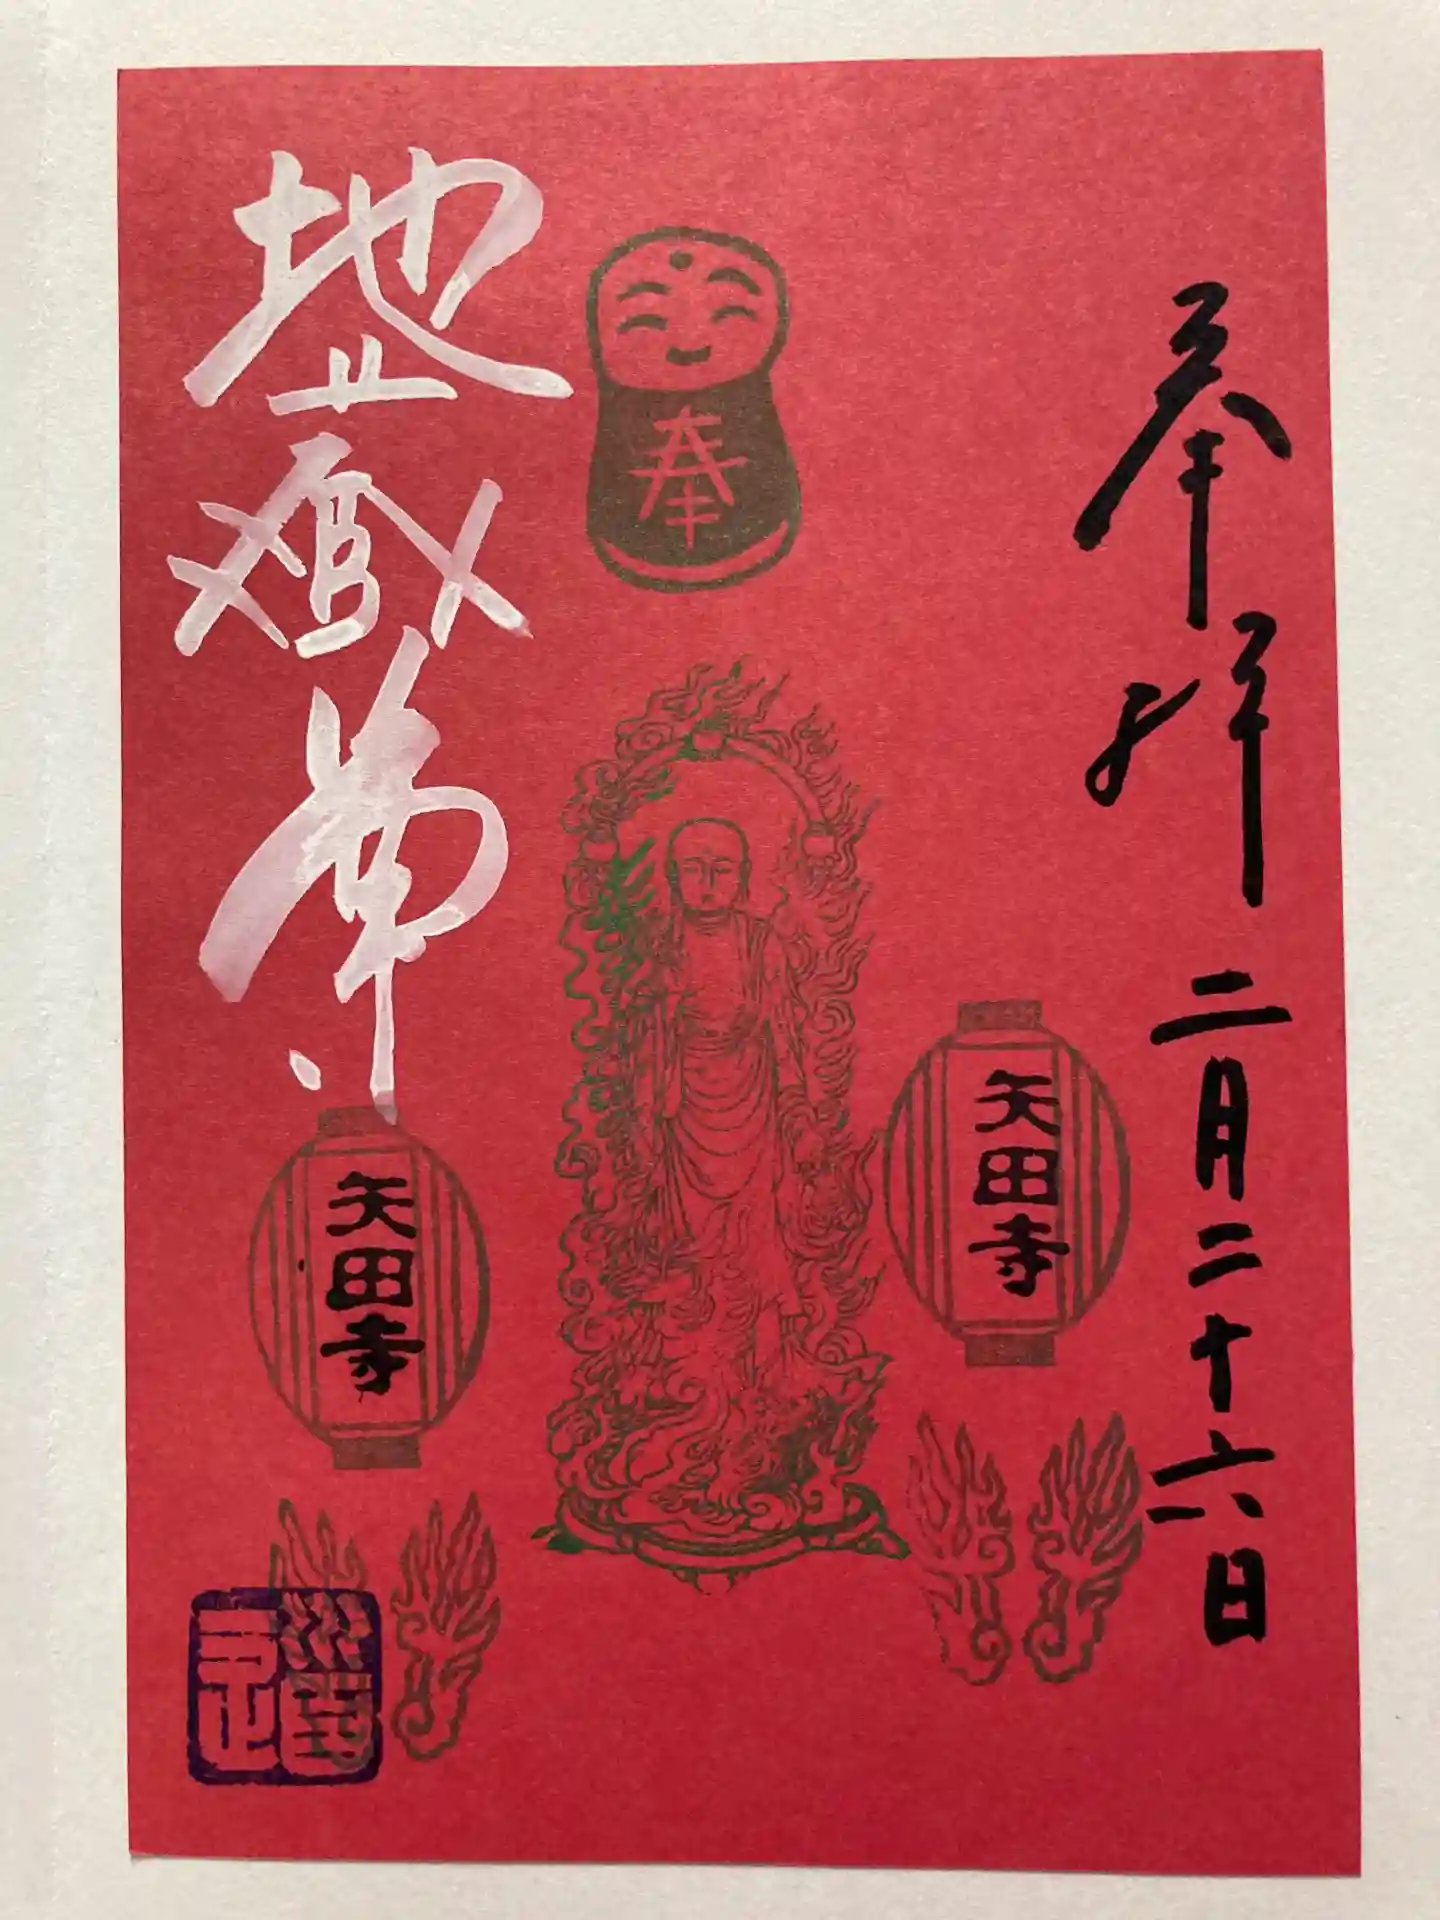 奉拝 二月二十六日
奉
矢田寺
矢田寺
地蔵尊